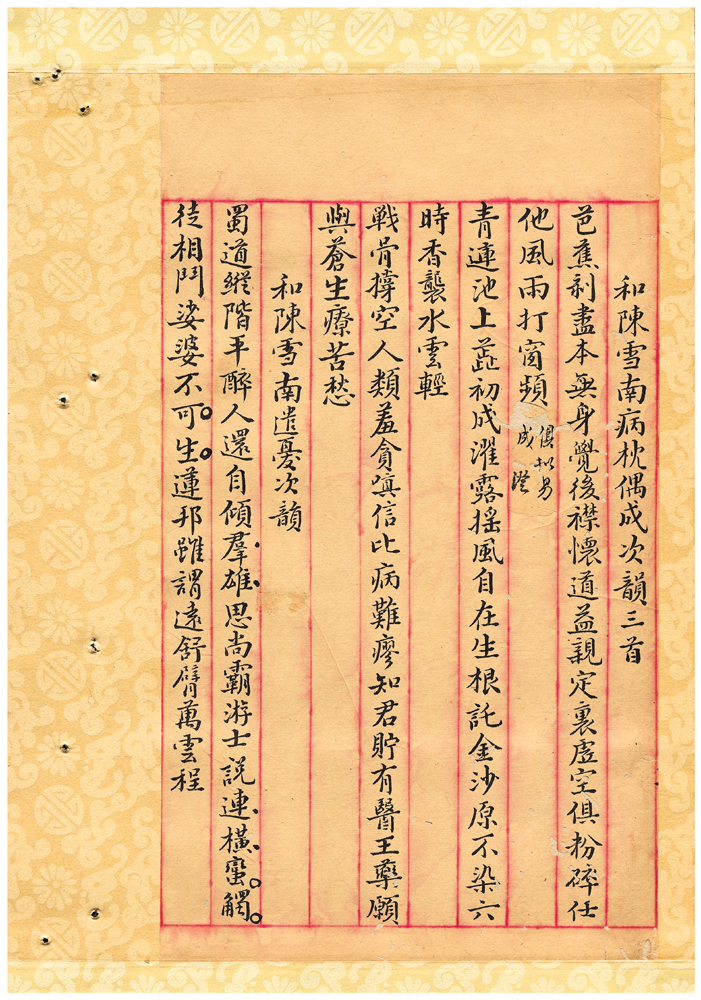 和陳雪南病枕偶成次韻三首
芭蕉剥盡本無身覺後襟懷道益親定裏虛空俱粉碎任
他風雨打窗頻
俱擬易
成澄
青蓮池上蕋初成濯露搖風自在生根託金沙原不染六
時香襲水雲輕
戰骨撐空人類羞貪嗔信比病難瘳知君貯有醫王藥願
與蒼生療苦愁
和陳雪南遣憂次韻
蜀道縱階平醉人還自傾羣雄思尚霸游士說連橫蠻觸
徒相鬥娑婆不可生蓮邦雖謂遠舒臂萬雲程